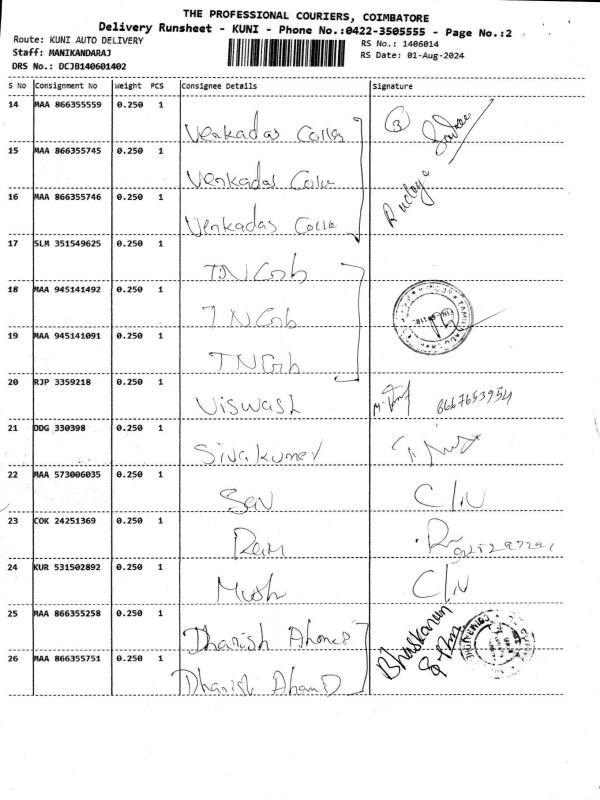 THE PROFESSIONAL COURIERS, COIMBATORE
Delivery Runsheet - KUNI - Phone No.:0422-3505555 - Page No.:2
Route: KUNI AUTO DELIVERY
RS No.: 1406014
Staff: MANIKANDARAJ
RS Date: 01-Aug-2024
DRS No.: DCJB140601402
S No Consignment No Weight PCS Consignee Details Signature
14 MAA 866355559 0.250 1 Venkadas
15 MAA 866355745 0.250 1 Venkadas
16 MAA 866355746 0.250 1 Venkadas
17 SLM 351549625 0.250 1
18 MAA 945141492 0.250 1
19 MAA 945141091 0.250 1
20 RJP 3359218 0.250 1 Viswash 8667653954
21 DDG 330398 0.250 1 Sivakumar
22 MAA 573006035 0.250 1
23 COK 24251369 0.250 1 Ram
24 KUR 531502892 0.250 1
25 MAA 866355258 0.250 1 Dharish Ahamed Bhaskaran
26 MAA 866355751 0.250 1 Dharish